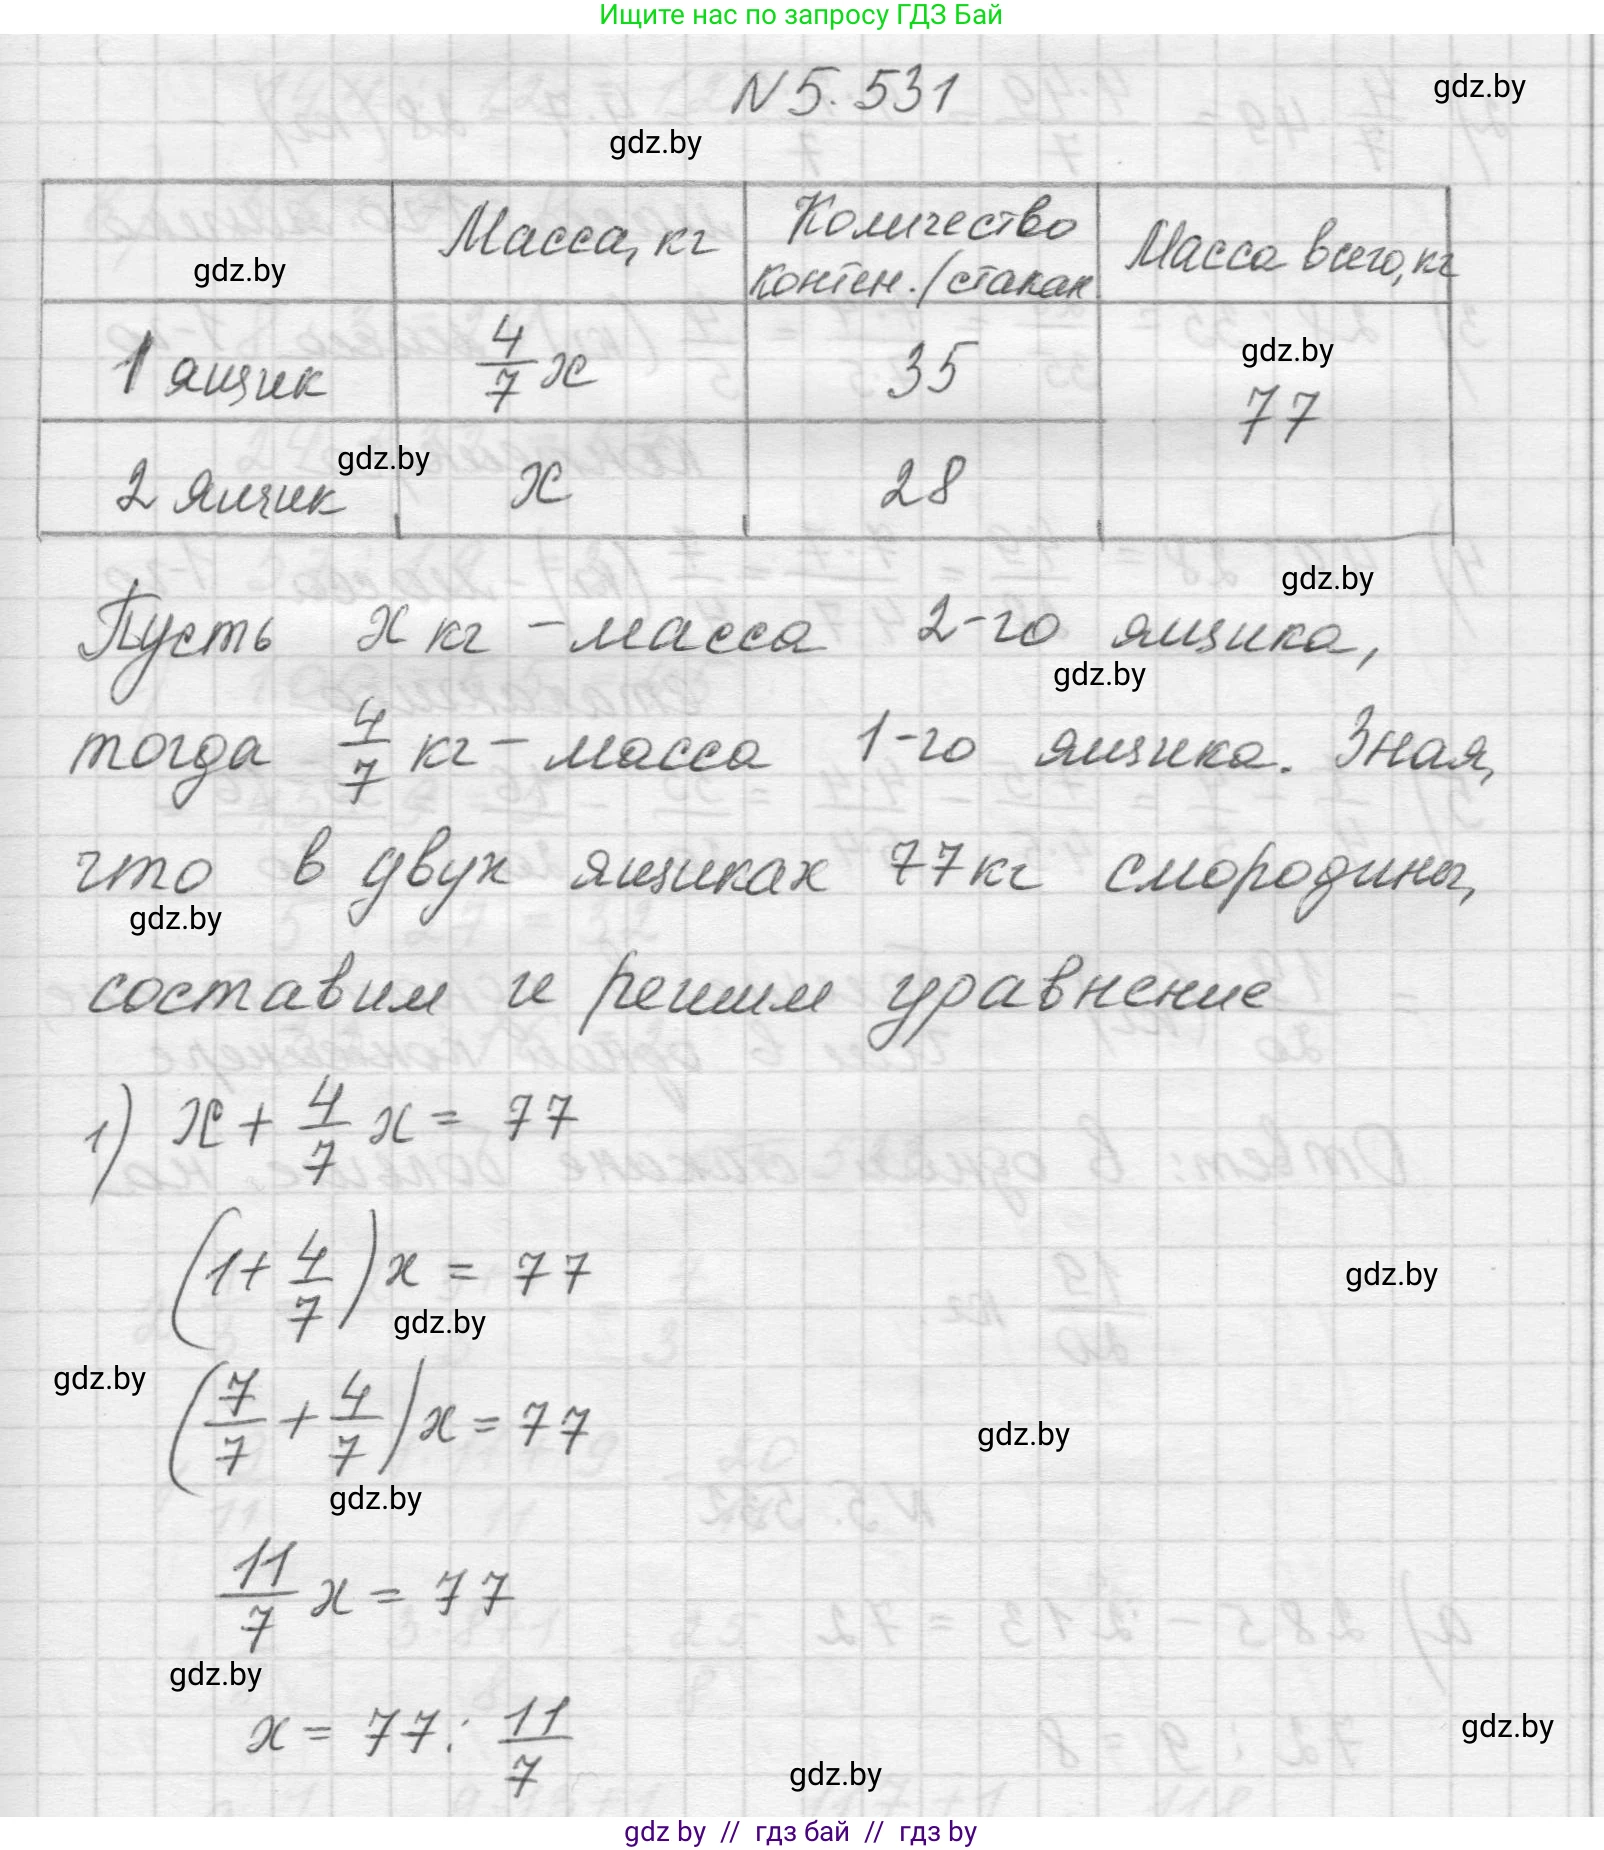 Ищите нас по запросу ГДЗ Бай
N 5.531
gdz.by
gdz.by
Масса, кг
Количество контен./стакан
Масса всего, кг
gdz.by
1 ящик
4/7 x
35
gdz.by
77
2 ящик
gdz.by
x
28
gdz.by
Пусть x кг – масса 2-го ящика,
gdz.by
тогда 4/7 кг – масса 1-го ящика. Зная,
что в двух ящиках 77 кг смородины,
gdz.by
составим и решим уравнение
1) x + 4/7 x = 77
(1 + 4/7) x = 77
gdz.by
gdz.by
gdz.by
(7/7 + 4/7) x = 77
gdz.by
gdz.by
11/7 x = 77
gdz.by
x = 77 : 11/7
gdz.by
gdz.by
gdz by // гдз бай // гдз by